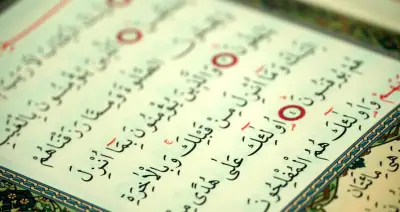 الَّذِينَ يُؤْمِنُونَ بِالْغَيْبِ
وَيُقِيمُونَ الصَّلٰوةَ وَمِمَّا رَزَقْنَاهُمْ
يُنْفِقُونَ وَالَّذِينَ يُؤْمِنُونَ بِمَا أُنْزِلَ
إِلَيْكَ وَمَا أُنْزِلَ مِنْ قَبْلِكَ وَبِالْاٰخِرَةِ
هُمْ يُوقِنُونَ أُولٰئِكَ عَلٰى هُدًى
وَأُولٰئِكَ هُمُ الْمُفْلِحُونَ